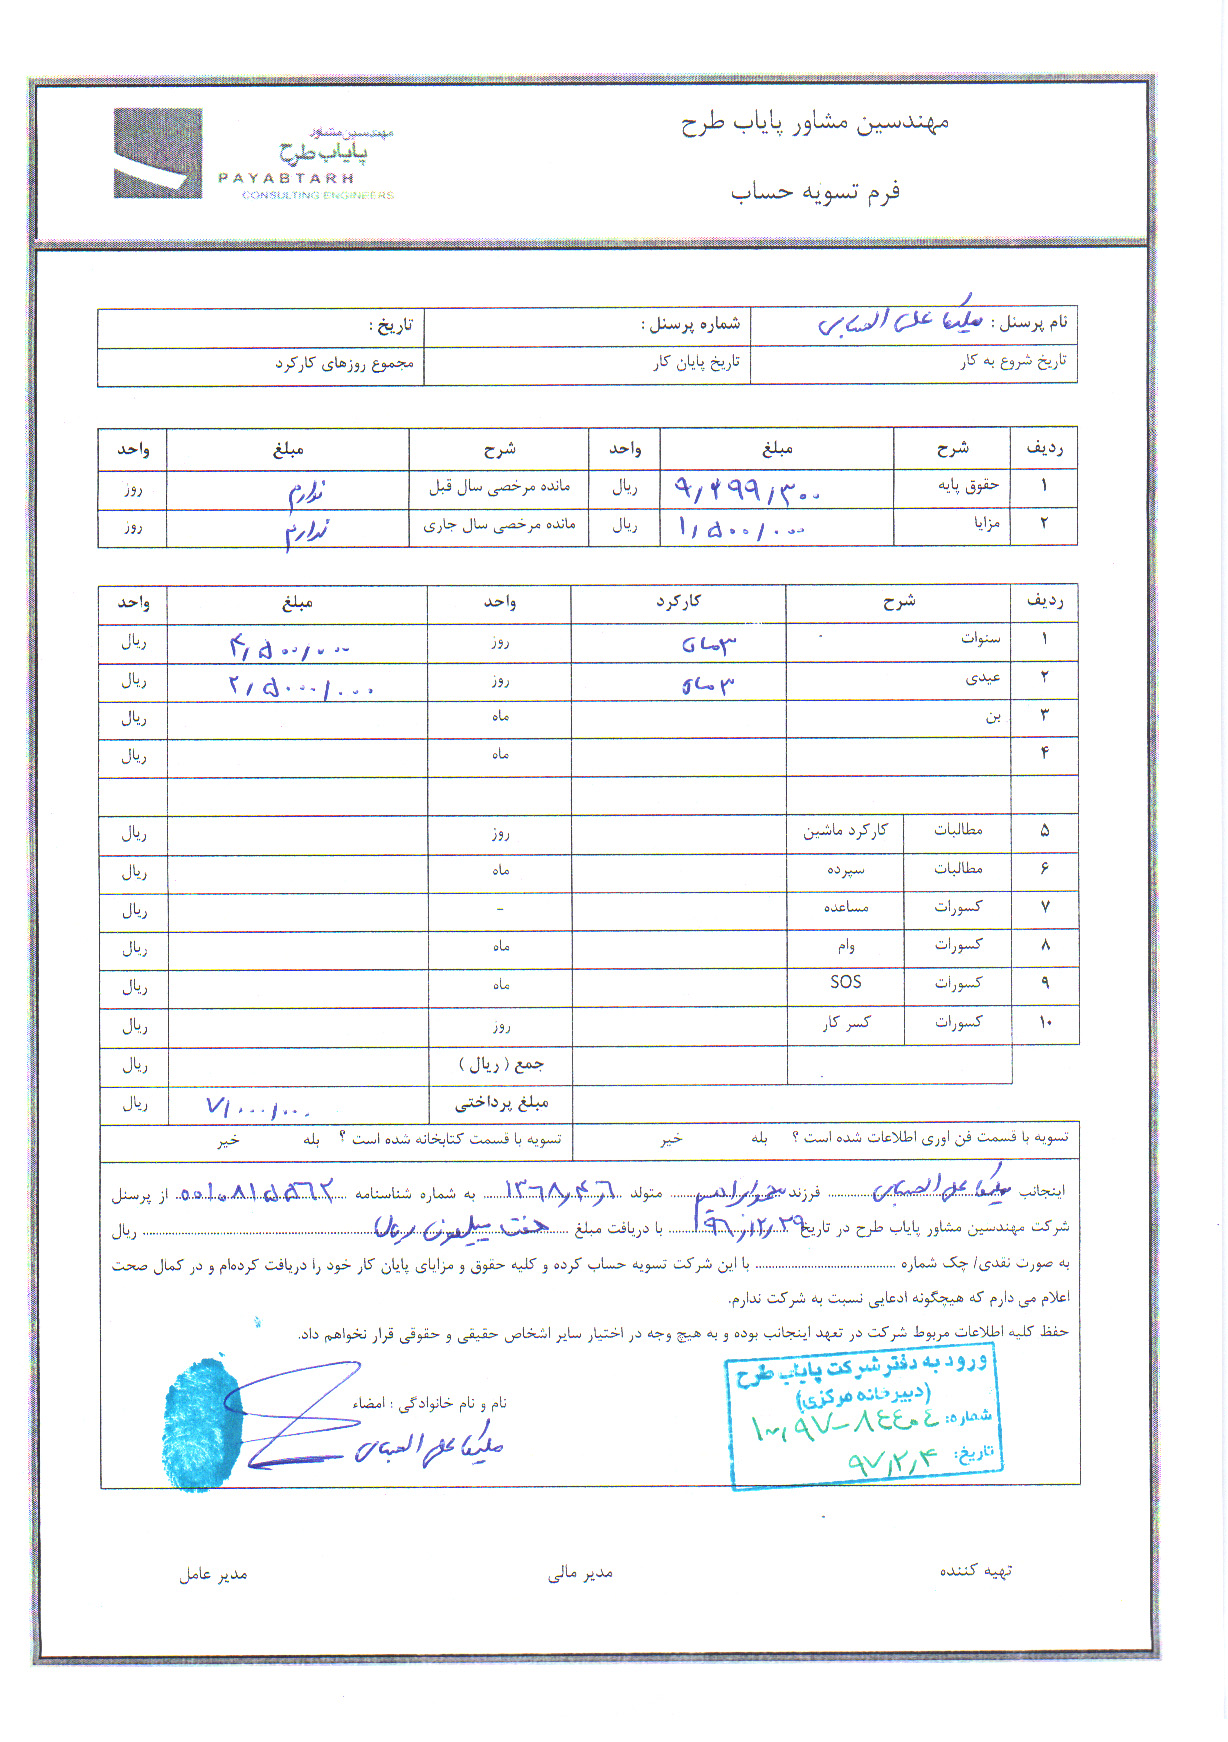 مهندسین مشاور پایاب طرح
فرم تسویه حساب
مهندسین مشاور
پایاب طرح
PAYABTARH
CONSULTING ENGINEERS
نام پرسنل : ملیکا علی العباسی شماره پرسنل : تاریخ :
تاریخ شروع به کار تاریخ پایان کار مجموع روزهای کارکرد
ردیف شرح مبلغ واحد شرح مبلغ واحد
۱ حقوق پایه ۹/۲۹۹/۳۰۰ ریال مانده مرخصی سال قبل ندارم روز
۲ مزایا ۱/۵۰۰/۰۰۰ ریال مانده مرخصی سال جاری ندارم روز
ردیف شرح کارکرد واحد مبلغ واحد
۱ سنوات ۳ماه روز ۴/۵۰۰/۰۰۰ ریال
۲ عیدی ۳ماه روز ۲/۵۰۰۰/۰۰۰ ریال
۳ بن ماه ریال
۴ ماه ریال
۵ مطالبات کارکرد ماشین روز ریال
۶ مطالبات سپرده ماه ریال
۷ کسورات مساعده - ریال
۸ کسورات وام ماه ریال
۹ کسورات SOS ماه ریال
۱۰ کسورات کسر کار روز ریال
جمع ( ریال ) ریال
مبلغ پرداختی ۷/۰۰۰/۰۰۰ ریال
تسویه با قسمت فن اوری اطلاعات شده است ؟ بله خیر تسویه با قسمت کتابخانه شده است ؟ بله خیر
اینجانب ملیکا علی العباسی فرزند متولد ۱۳۶۸/۴/۶ به شماره شناسنامه ۰۰۱۰۸۱۵۵۶۲ از پرسنل
شرکت مهندسین مشاور پایاب طرح در تاریخ ۹۶/۱۲/۲۹ با دریافت مبلغ هفت میلیون ریال ریال
به صورت نقدی/ چک شماره با این شرکت تسویه حساب کرده و کلیه حقوق و مزایای پایان کار خود را دریافت کرده‌ام و در کمال صحت
اعلام می دارم که هیچگونه ادعایی نسبت به شرکت ندارم.
حفظ کلیه اطلاعات مربوط شرکت در تعهد اینجانب بوده و به هیچ وجه در اختیار سایر اشخاص حقیقی و حقوقی قرار نخواهم داد.
ورود به دفتر شرکت پایاب طرح
(دبیرخانه مرکزی)
شماره: ۱۰۰/۹۷-۸۴۴۰۴
تاریخ: ۹۷/۲/۴
نام و نام خانوادگی : امضاء
ملیکا علی العباسی
تهیه کننده مدیر مالی مدیر عامل